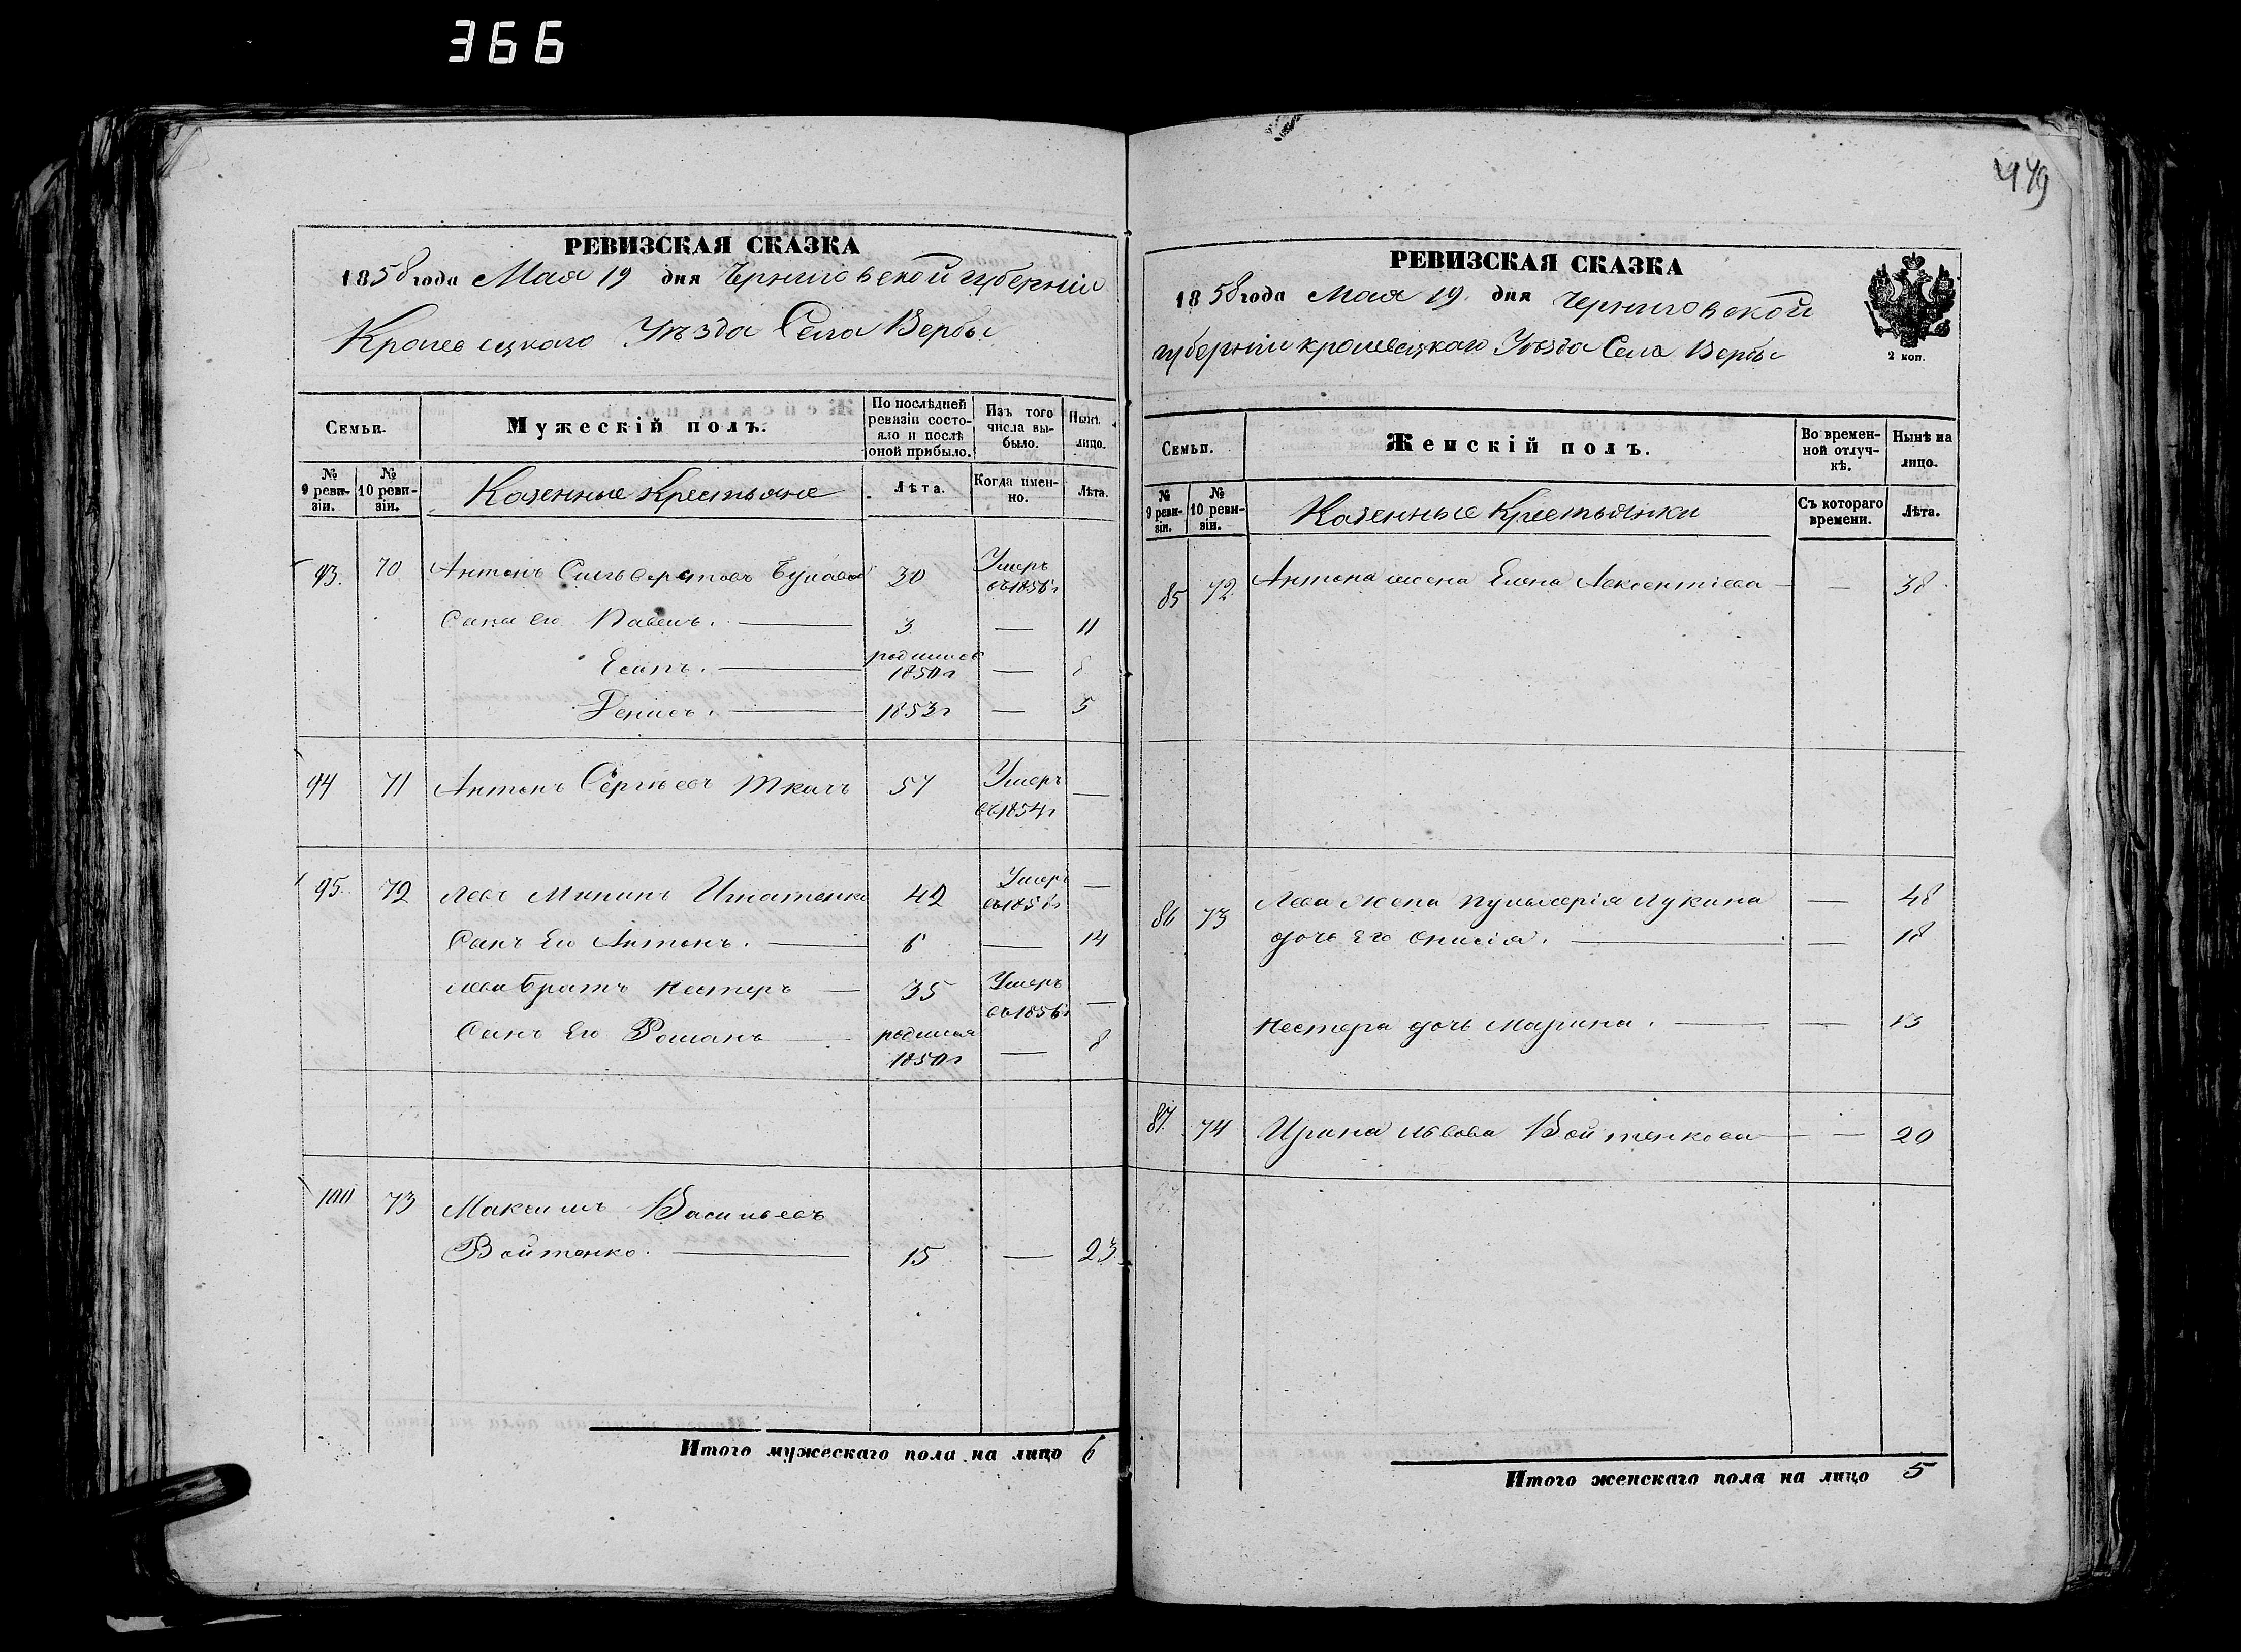 366
479
РЕВИЗСКАЯ СКАЗКА
1858 года Мая 19 дня Черниговской губерніи
Кролевецкаго Уѣзда Села Вербы
Семьи.
Мужескій полъ.
По послѣдней ревизіи состояло и послѣ оной прибыло.
Изъ того числа выбыло.
Нынѣ на лицо.
№ 9 ревизіи.
№ 10 ревизіи.
Казенные Крестьяне
Лѣта.
Когда именно.
Лѣта.
93. 70 Антонъ Сильвестровъ 30 Умеръ
въ 185 г
Сыны его Павелъ. — 3 — 11
Есипъ. — родился 1850 г — 8
Денисъ. — 1853 г — 5
94 71 Антонъ Сергѣевъ Ткачъ 57 Умеръ —
въ 1854 г
95. 72 Левъ Мининъ Игнатенко 42 Умеръ —
въ 185 г
Сынъ Его Антонъ. — 6 — 14
Льва братъ Нестеръ — 35 Умеръ —
въ 1856 г
Сынъ Его Романъ — родился 1850 г — 8
100 73 Максимъ Васильевъ
Войтенко. — 15 — 23
Итого мужескаго пола на лицо 6
РЕВИЗСКАЯ СКАЗКА
1858 года Мая 19. дня Черниговской
губерніи Кролевецкаго Уѣзда Села Вербы
2 коп.
Семьи.
Женскій полъ.
Во временной отлучкѣ.
Нынѣ на лицо.
№ 9 ревизіи.
№ 10 ревизіи.
Казенные Крестьянки
Съ котораго времени.
Лѣта.
85 72 Антона жена Елена Авксентіева — — 38
86 73 Льва жена Пульхерія Лукина — 48
дочь Его Онисія. — — 18
Нестера дочь Марина. — — 13
87. 74 Ирина Львова Войтенкова — — 20
Итого женскаго пола на лицо 5